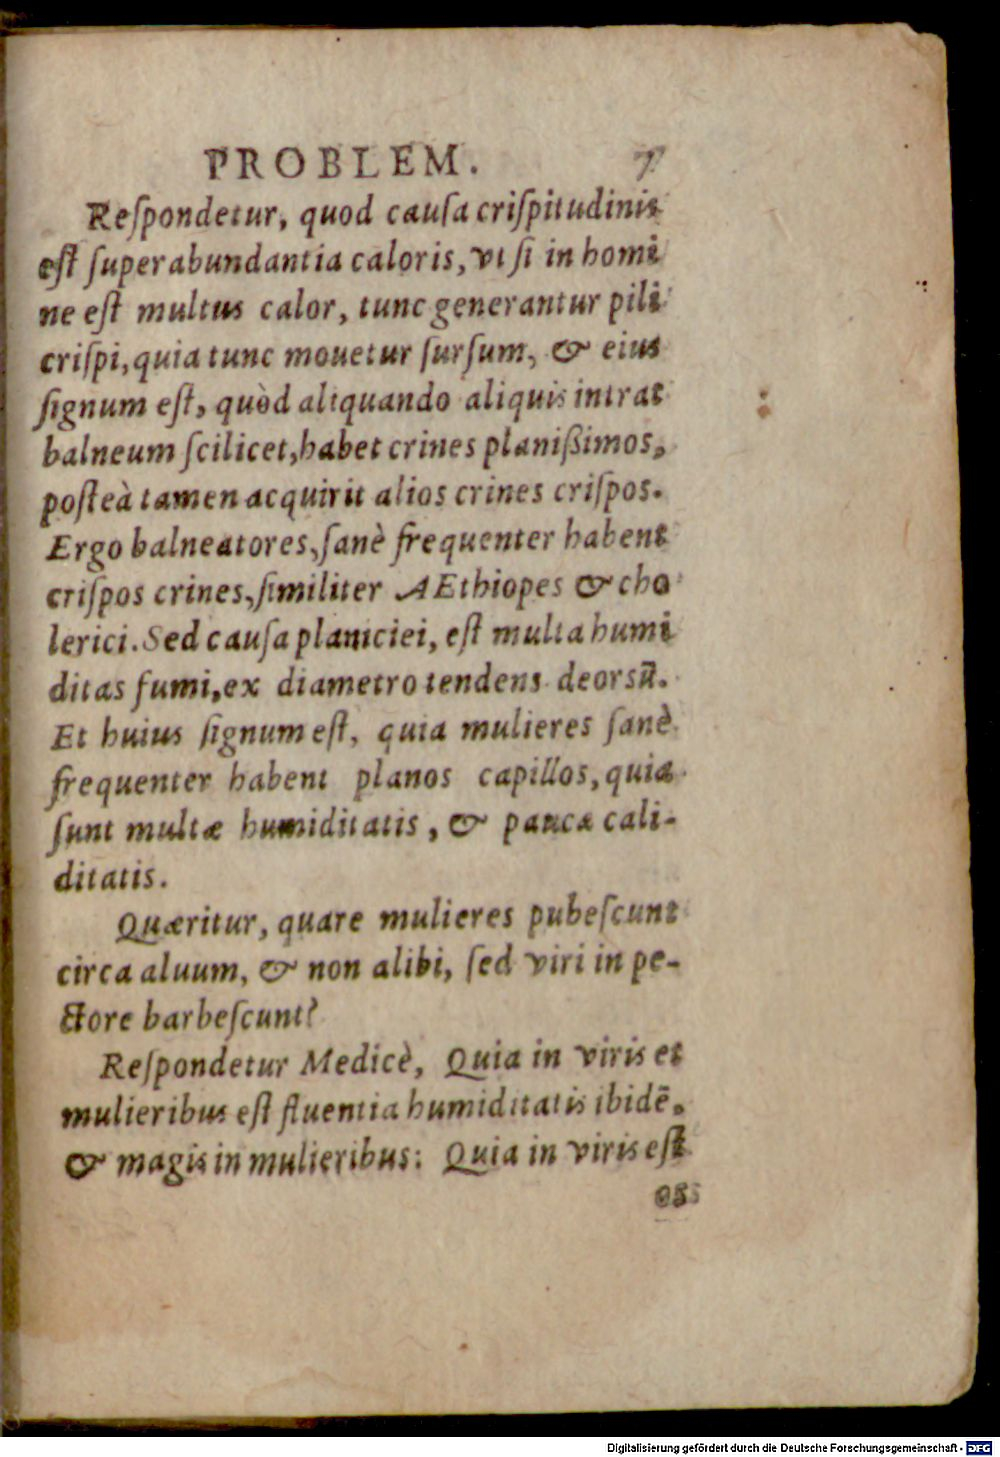 PROBLEM. 7
Reſpondetur, quod cauſa criſpitudinis
eſt ſuperabundantia caloris, vt ſi in homi
ne eſt multus calor, tunc generantur pili
criſpi, quia tunc mouetur ſurſum, & eius
ſignum eſt, quòd aliquando aliquis intrat
balneum ſcilicet, habet crines planißimos,
poſteà tamen acquirit alios crines criſpos.
Ergo balneatores, ſanè frequenter habent
criſpos crines, ſimiliter AEthiopes & cho
lerici. Sed cauſa planiciei, eſt multa humi
ditas fumi, ex diametro tendens deorsū.
Et huius ſignum eſt, quia mulieres ſanè
frequenter habent planos capillos, quia
ſunt multæ humiditatis, & pauca cali-
ditatis.
Quæritur, quare mulieres pubeſcunt
circa aluum, & non alibi, ſed viri in pe-
ctore barbeſcunt?
Reſpondetur Medicè, Quia in viris et
mulieribus eſt fluentia humiditatis ibidē,
& magis in mulieribus: Quia in viris eſt
os
Digitalisierung gefördert durch die Deutsche Forschungsgemeinschaft - DFG